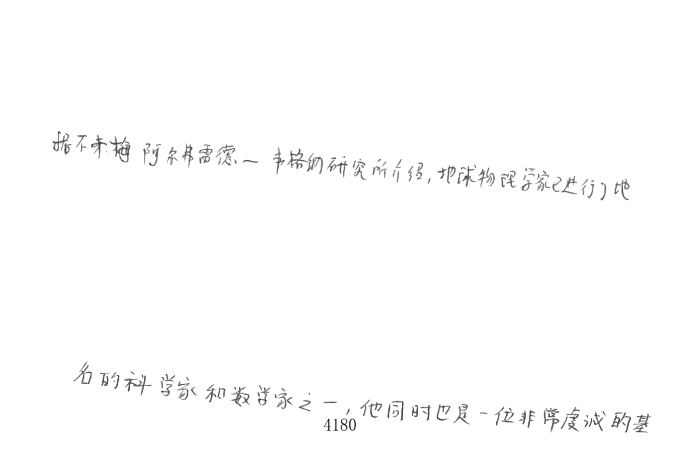 据不来梅阿尔弗雷德—韦格纳研究所介绍，地球物理学家已进行了地
名的科学家和数学家之一，他同时也是一位非常虔诚的基
4180